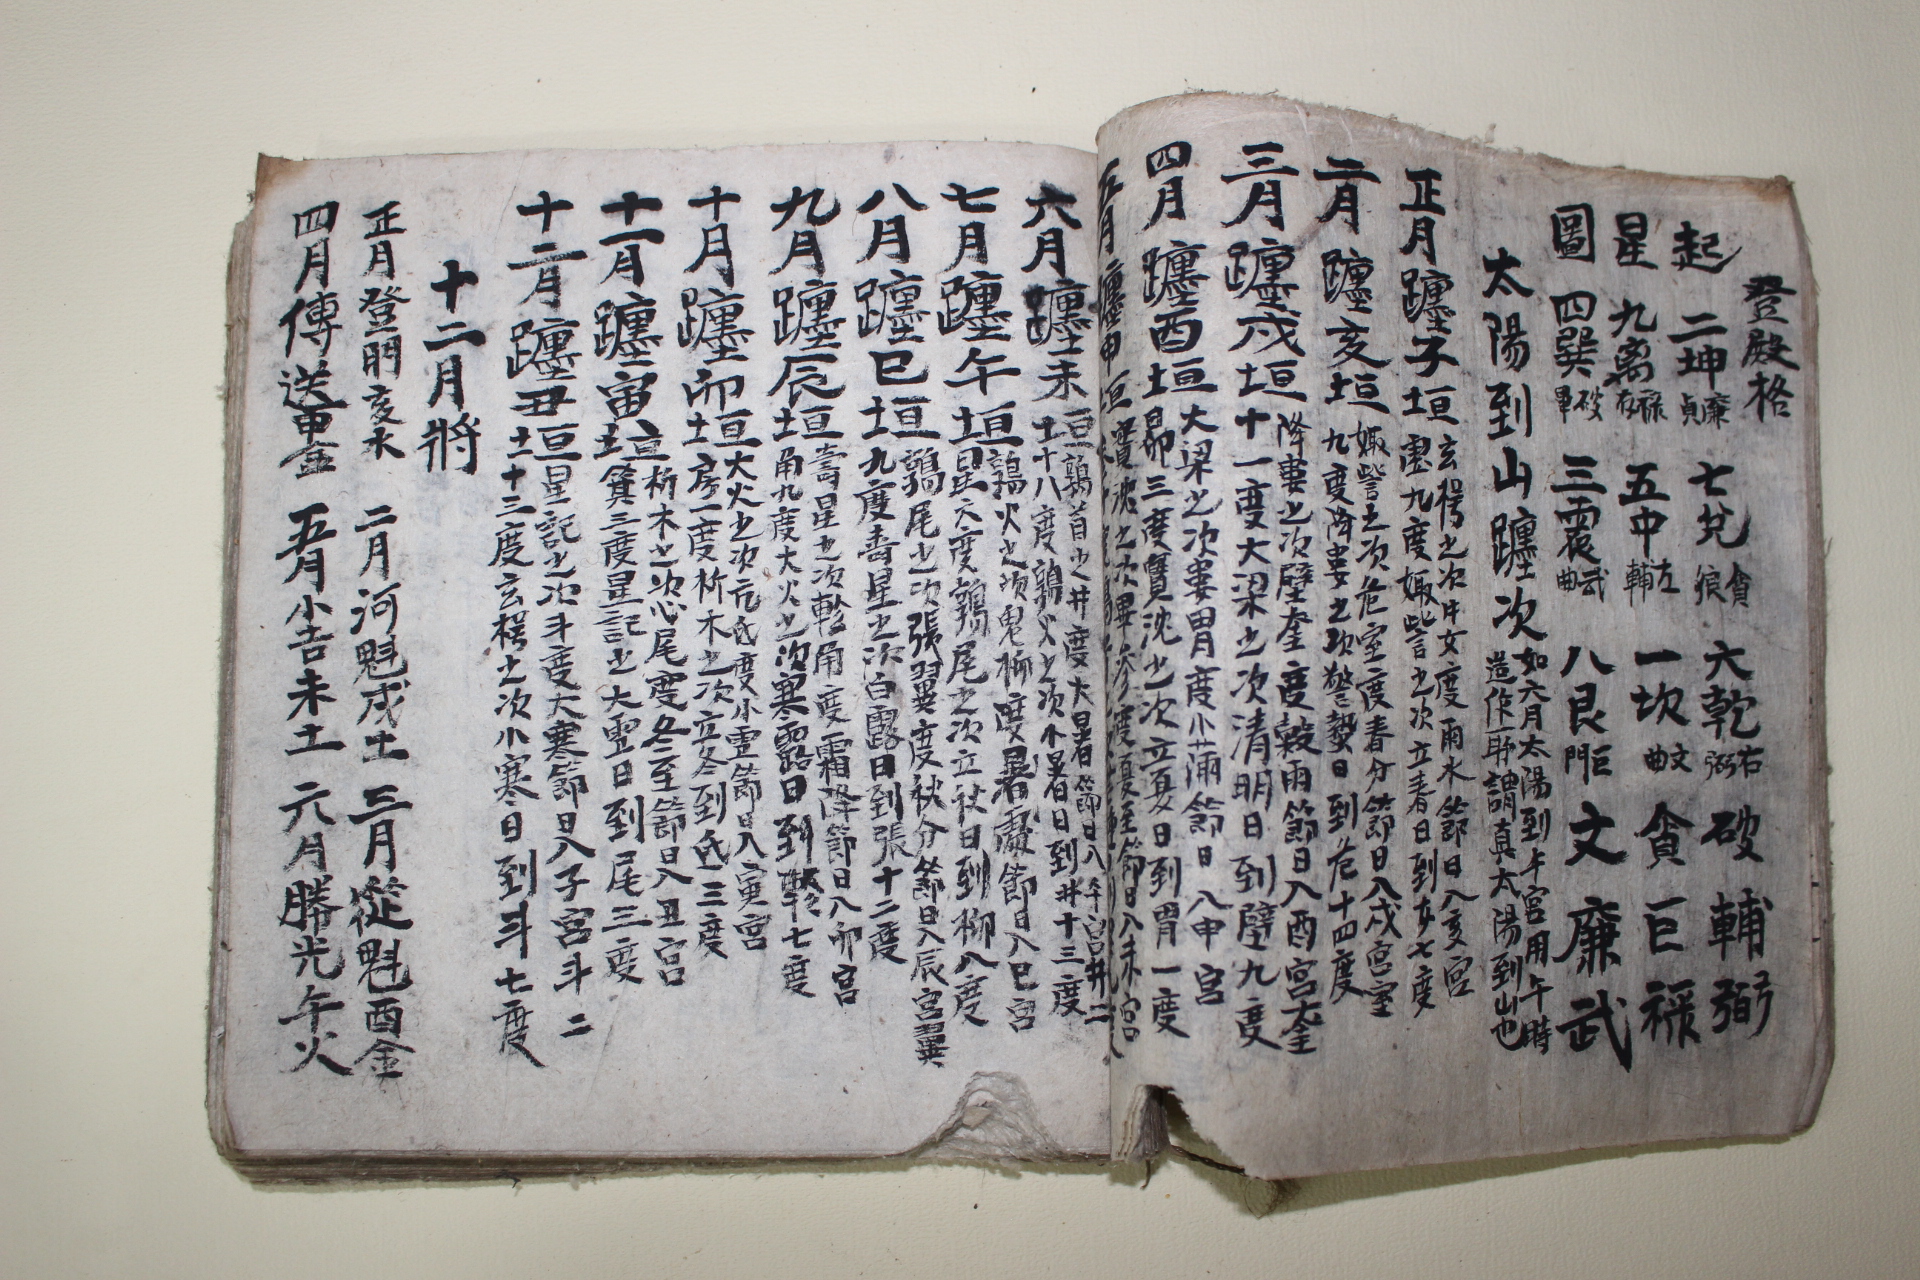 登殿格
起 二坤廉貞 七兌貪狼 六乾右弼 破 輔 弼
星 九离祿存 五中左輔 一坎文曲 貪 巨 祿
圖 四巽破軍 三震武曲 八艮巨門 文 廉 武
太陽到山躔次 如六月太陽到午宮用午時造作所謂真太陽到山也
正月躔子垣 玄枵之次牛女度雨水節日入亥宮
虛九度娵訾之次立春日到女七度
二月躔亥垣 娵訾之次危室度春分節日入戌宮室
九度降婁之次驚蟄日到危十四度
三月躔戌垣 降婁之次壁奎度穀雨節日入酉宮奎
十一度大梁之次清明日到壁九度
四月躔酉垣 大梁之次婁胃度小滿節日入申宮
昴三度實沈之次立夏日到胃一度
五月躔申垣 實沈之次畢參度夏至節日入未宮
六月躔未垣 鶉首之井度大暑節日入午宮井二
十八度鶉火之次小暑日到井十三度
七月躔午垣 鶉火之次鬼柳度處節日入巳宮
星六度鶉尾之次立秋日到柳八度
八月躔巳垣 鶉尾之次張翼度秋分節日入辰宮翼
九度壽星之次白露日到張十二度
九月躔辰垣 壽星之次軫角度霜降節日入卯宮
角九度大火之次寒露日到軫七度
十月躔卯垣 大火之次亢氐度小雪節日入寅宮
房一度析木之次立冬到氐三度
十一月躔寅垣 析木之次心尾度冬至節日入丑宮
箕三度星記之大雪日到尾三度
十二月躔丑垣 星記之次斗度大寒節日入子宮斗二
十三度玄枵之次小寒日到斗七度
十二月將
正月登明亥水 二月河魁戌土 三月從魁酉金
四月傳送申金 五月小吉未土 六月勝光午火